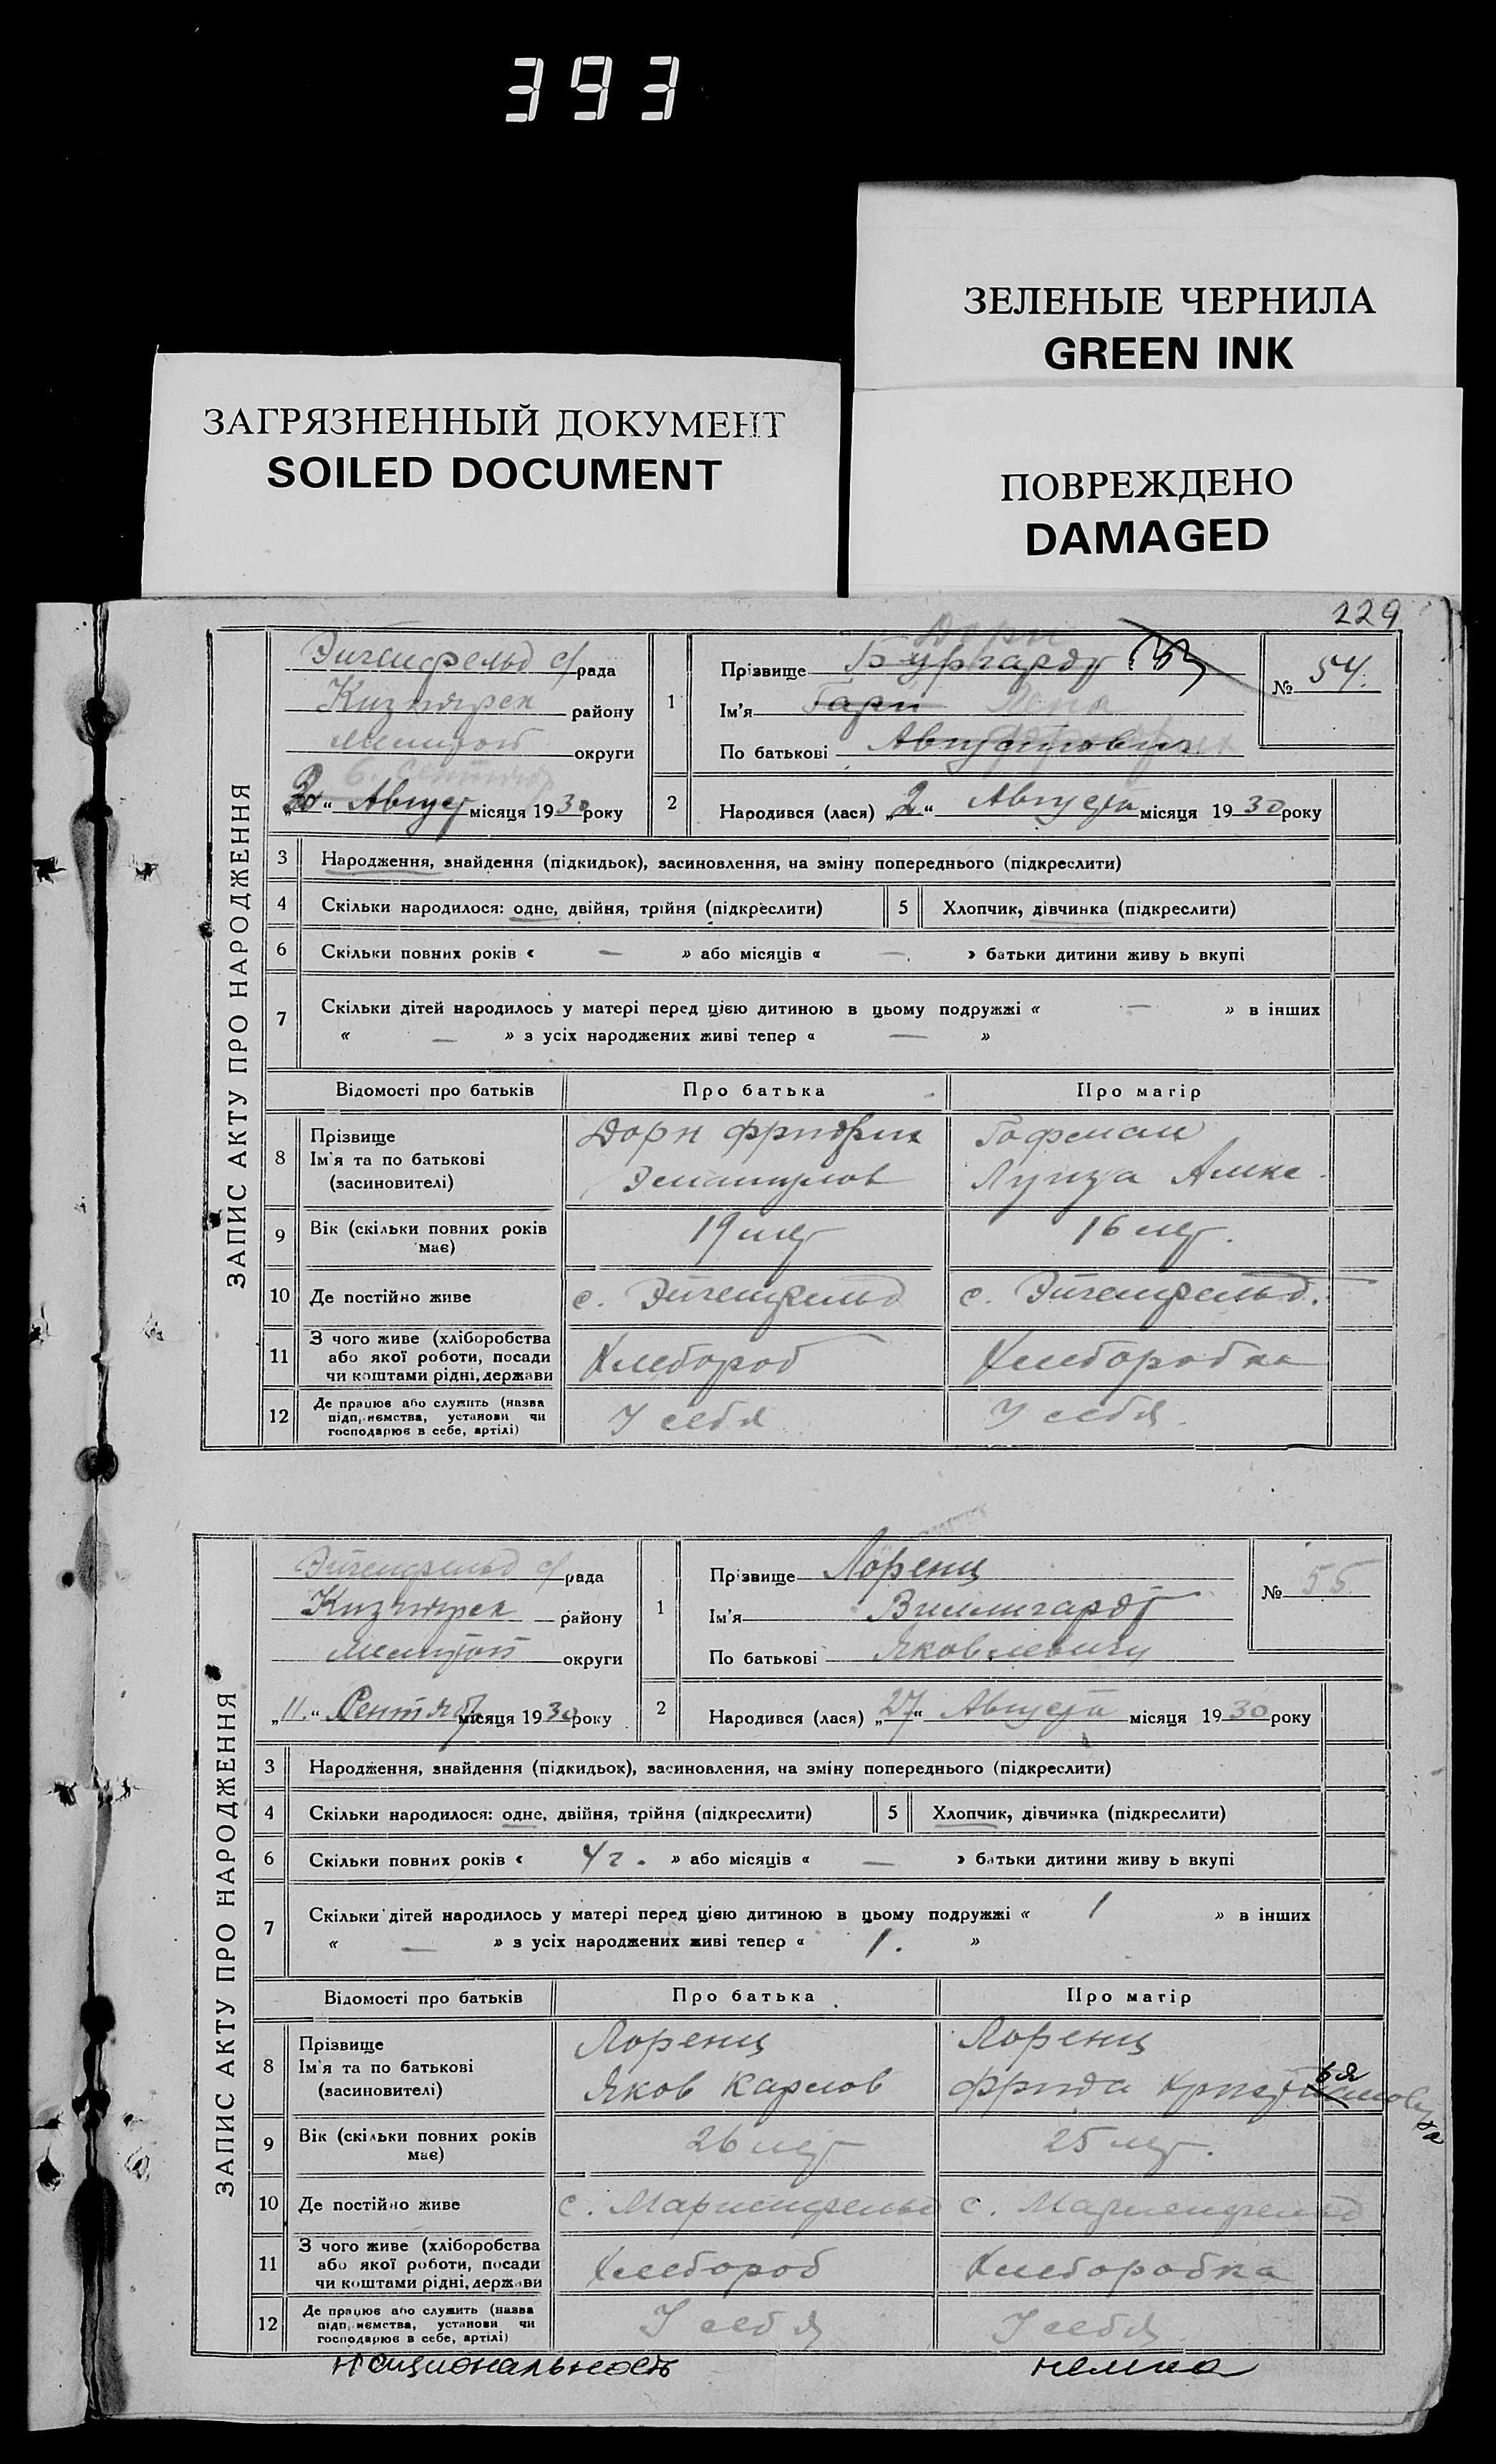 393
ЗЕЛЕНЫЕ ЧЕРНИЛА
GREEN INK
ЗАГРЯЗНЕННЫЙ ДОКУМЕНТ
SOILED DOCUMENT
ПОВРЕЖДЕНО
DAMAGED
229
ЗАПИС АКТУ ПРО НАРОДЖЕННЯ
Эйгенфельд с/рада
району
округи
30 " Август місяця 1930 року
1
Дорн
Прізвище Бургардт
Ім'я Гари Лена
По батькові Августович
№ 54.
2 Народився (лася) „2" Августа місяця 1930 року
3 Народження, знайдення (підкидьок), засиновлення, на зміну попереднього (підкреслити)
4 Скільки народилося: одне, двійня, трійня (підкреслити) 5 Хлопчик, дівчинка (підкреслити)
6 Скільки повних років « — » або місяців « — » батьки дитини живу ь вкупі
7 Скільки дітей народилось у матері перед цією дитиною в цьому подружжі « — » в інших
« — » з усіх народжених живі тепер « — »
Відомості про батьків Про батька Про матір
8 Прізвище
Ім'я та по батькові
(засиновителі)
Дорн Фридрих
Гофман
Луиза
9 Вік (скільки повних років
має)
19 лет 16 лет.
10 Де постійно живе с. Эйгенфельд с. Эйгенфельд.
11 З чого живе (хліборобства
або якої роботи, посади
чи коштами рідні, держави
Хлебороб Хлеборобка
12 Де працює або служить (назва
підприємства, установи чи
господарює в себе, артілі)
У себя У себя.
ЗАПИС АКТУ ПРО НАРОДЖЕННЯ
Эйгенфельд с/рада
району
округи
„11." Сентяб місяця 1930 року
1
Прізвище Лоренц
Ім'я Виллигардт
По батькові Яковлевич
№ 55
2 Народився (лася) „27" Августа місяця 1930 року
3 Народження, знайдення (підкидьок), засиновлення, на зміну попереднього (підкреслити)
4 Скільки народилося: одне, двійня, трійня (підкреслити) 5 Хлопчик, дівчинка (підкреслити)
6 Скільки повних років « 4 г. » або місяців « — » батьки дитини живу ь вкупі
7 Скільки дітей народилось у матері перед цією дитиною в цьому подружжі « 1 » в інших
« — » з усіх народжених живі тепер « 1. »
Відомості про батьків Про батька Про матір
8 Прізвище
Ім'я та по батькові
(засиновителі)
Лоренц Лоренц
Яков Карлов Фрида
9 Вік (скільки повних років
має)
26 лет 25 лет.
10 Де постійно живе с. Мариенфельд с. Мариенфельд
11 З чого живе (хліборобства
або якої роботи, посади
чи коштами рідні, держави
Хлебороб Хлеборобка
12 Де працює або служить (назва
підприємства, установи чи
господарює в себе, артілі)
У себя У себя
национальность немка